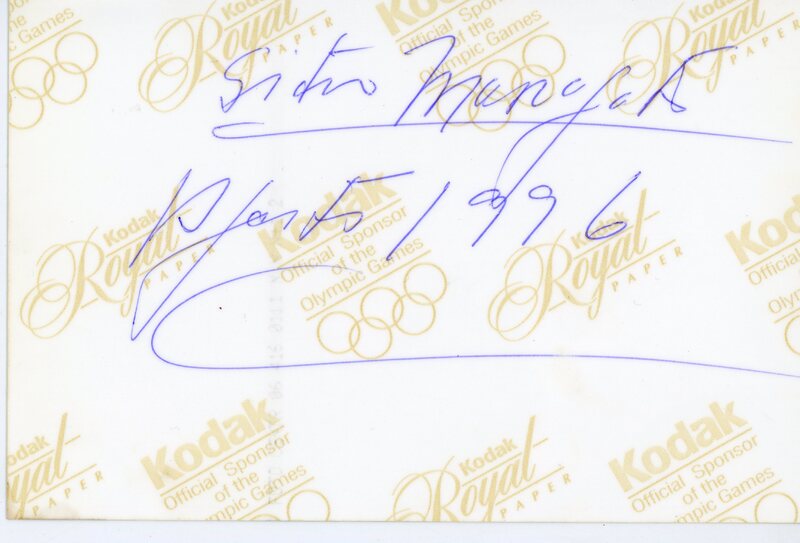 Games
Kodak
Royal
PAPER
Official Sponsor
of the
Olympic Games
Kodak
Royal
PAPER
Maragato
Agosto 1996
Kodak
Royal
PAPER
Kodak
Official Sponsor
of the
Olympic Games
Kodak
Royal
PAPER
Kodak
Official
Olympic
Kodak
Royal
PAPER
Kodak
Official Sponsor
of the
Games
Kodak
Royal
PAPER
Kodak
Official Sponsor
of the
Games